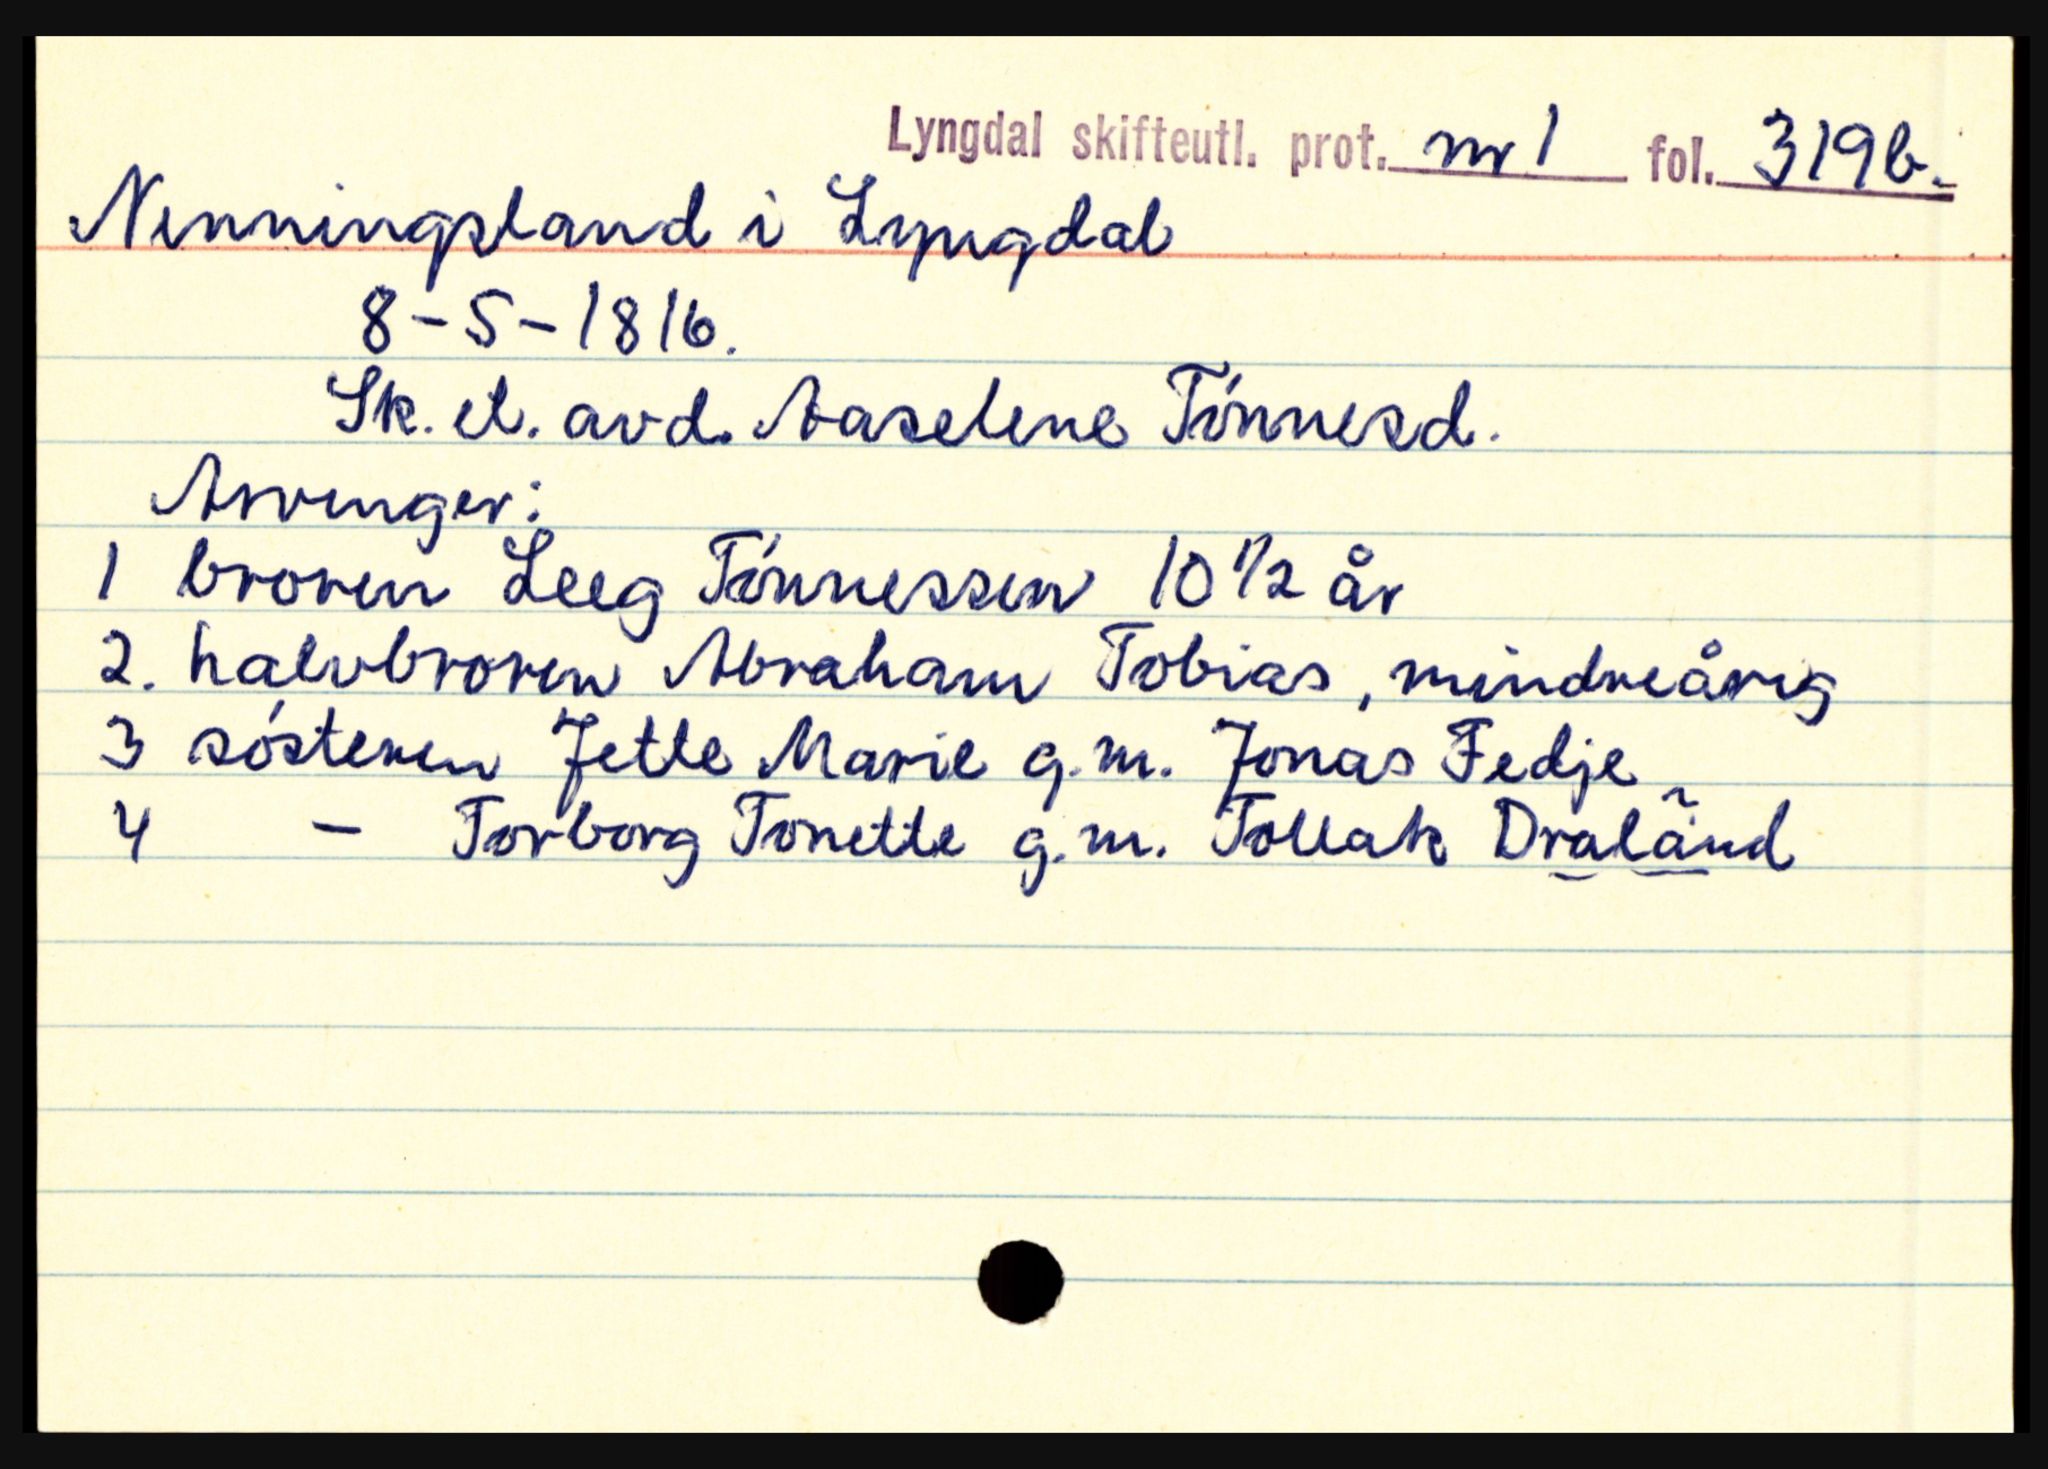 Lyngdal skifteutl. prot. nr 1 fol. 319b.
Nenningsland i Lyngdal
8-5-1816.
Sk. et. avd. Aaselene Tónnesd.
Arvinger:
1 broren Leeg Tónnessen 10 1/2 år
2. halvbroren Abraham Tobias, mindreårig
3 sósteren Jette Marie g.m. Jonas Fedje
4 - Torborg Tonette g.m. Tollak Draland